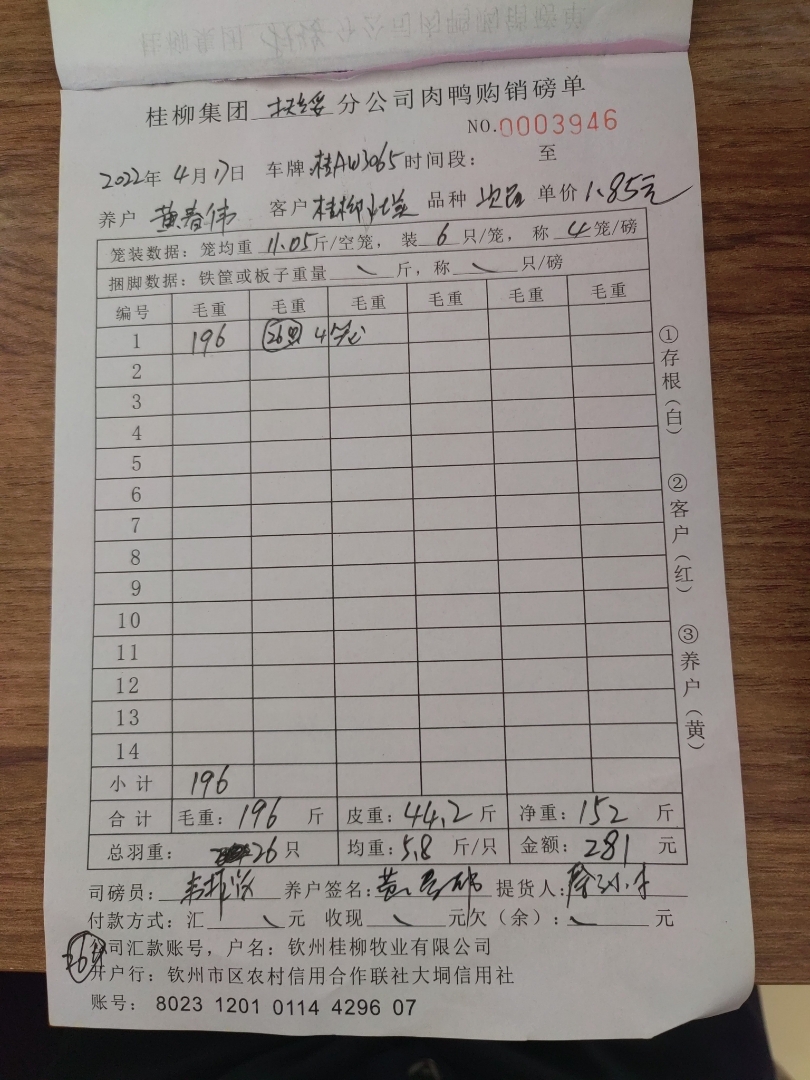 桂柳集团 扶绥 分公司肉鸭购销磅单
NO.0003946
2022年 4月17日 车牌:桂AW3065 时间段: 至
养户 黄春伟 客户 桂柳 品种 单价 1.85元
笼装数据:笼均重 11.05 斤/空笼,装 6 只/笼,称 4 笼/磅
捆脚数据:铁筐或板子重量 \ 斤,称 \ 只/磅
编号 毛重 毛重 毛重 毛重 毛重 毛重
1 196 26只 4笼
2
3
4
5
6
7
8
9
10
11
12
13
14
小计 196
合计 毛重:196 斤 皮重:44.2 斤 净重:152 斤
总羽重: 26 只 均重:5.8 斤/只 金额:281 元
司磅员: 养户签名: 提货人:
付款方式:汇 \ 元 收现 \ 元欠(余):\ 元
公司汇款账号,户名:钦州桂柳牧业有限公司
开户行:钦州市区农村信用合作联社大垌信用社
账号:8023 1201 0114 4296 07
①存根(白)
②客户(红)
③养户(黄)